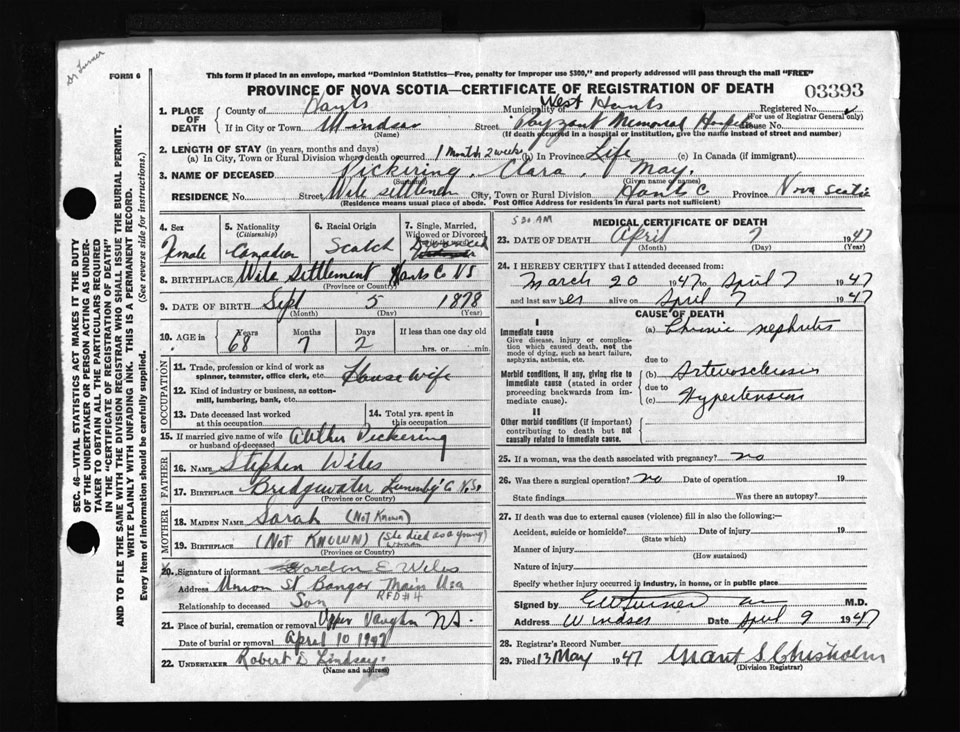 Dr Turner
FORM 6
This form if placed in an envelope, marked "Dominion Statistics—Free, penalty for improper use $300," and properly addressed will pass through the mail "FREE"
PROVINCE OF NOVA SCOTIA—CERTIFICATE OF REGISTRATION OF DEATH
03393
1. PLACE OF DEATH County of Hants Municipality of West Hants Registered No.
(For use of Registrar General only)
If in City or Town Windsor (Name) Street Payzant Memorial House No.
(If death occurred in a hospital or institution, give its name instead of street and number)
2. LENGTH OF STAY (in years, months and days)
(a) In City, Town or Rural Division where death occurred 1 Month 2 weeks (b) In Province Life (c) In Canada (if immigrant)
3. NAME OF DECEASED Pickering, Clara, May.
(Surname) (Given or given names)
RESIDENCE No. Street Wile Settlement City, Town or Rural Division Hants C Province Nova Scotia
(Residence means usual place of abode. Post Office Address for residents in rural parts not sufficient)
4. Sex Female
5. Nationality (Citizenship) Canadian
6. Racial Origin Scotch
7. Single, Married, Widowed or Divorced
8. BIRTHPLACE Wile Settlement Hants C NS
(Province or Country)
9. DATE OF BIRTH Sept 5 1878
(Month) (Day) (Year)
10. AGE in Years 68 Months 7 Days 2 If less than one day old hrs. or min.
OCCUPATION
11. Trade, profession or kind of work as spinner, teamster, office clerk, etc. House wife
12. Kind of industry or business, as cotton-mill, lumbering, bank, etc.
13. Date deceased last worked at this occupation
14. Total yrs. spent in this occupation
15. If married give name of wife or husband of deceased Pickering
FATHER
16. NAME Stephen Wiles
17. BIRTHPLACE Bridgewater Lunenbg C N.S.
(Province or Country)
MOTHER
18. MAIDEN NAME Sarah (Not Known)
19. BIRTHPLACE (NOT KNOWN) (She died as a young woman)
(Province or Country)
20. Signature of informant Gordon E Wiles
Address Union St Bangor Main Usa
RFD #4
Relationship to deceased Son
21. Place of burial, cremation or removal Upper Vaughn NS.
Date of burial or removal April 10 1947
22. UNDERTAKER Robert D Lindsay
(Name and address)
5 30 AM
MEDICAL CERTIFICATE OF DEATH
23. DATE OF DEATH April 7 1947
(Month) (Day) (Year)
24. I HEREBY CERTIFY that I attended deceased from:
March 20 1947 to April 7 1947
and last saw her alive on April 7 1947
CAUSE OF DEATH
I
Immediate cause (a) Chronic nephritis
Give disease, injury or complication which caused death, not the mode of dying, such as heart failure, asphyxia, asthenia, etc.
due to
Morbid conditions, if any, giving rise to immediate cause (stated in order proceeding backwards from immediate). (b) Arteriosclerosis
due to
(c) Hypertension
II
Other morbid conditions (if important) contributing to death but not causally related to immediate cause.
25. If a woman, was the death associated with pregnancy? no
26. Was there a surgical operation? no Date of operation 19
State findings Was there an autopsy?
27. If death was due to external causes (violence) fill in also the following:—
Accident, suicide or homicide? Date of injury 19
(State which)
Manner of injury
(How sustained)
Nature of injury
Specify whether injury occurred in industry, in home, or in public place
Signed by G W Turner M.D.
Address Windsor Date April 9 1947
28. Registrar's Record Number
29. Filed 13 May 1947 Grant S. Chisholm
(Division Registrar)
SEC. 46—VITAL STATISTICS ACT MAKES IT THE DUTY
OF THE UNDERTAKER OR PERSON ACTING AS UNDER-
TAKER TO OBTAIN ALL THE PARTICULARS REQUIRED
IN THE "CERTIFICATE OF REGISTRATION OF DEATH"
AND TO FILE THE SAME WITH THE DIVISION REGISTRAR WHO SHALL ISSUE THE BURIAL PERMIT.
WRITE PLAINLY WITH UNFADING INK. THIS IS A PERMANENT RECORD.
Every item of information should be carefully supplied. (See reverse side for instructions.)